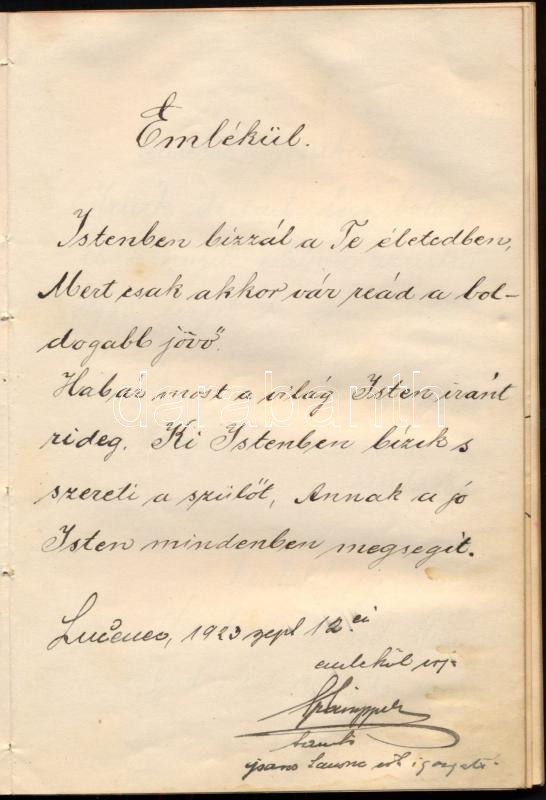 Emlékül.
Istenben bizzál a Te életedben,
Mert csak akkor vár reád a bol-
dogabb jövő.
Habár most a világ Isten iránt
rideg. Ki Istenben bizik s
szereti a szülőt, Annak a jó
Isten mindenben megsegit.
darabanth
Lučenec, 1923 szept 12.ei
emlékül